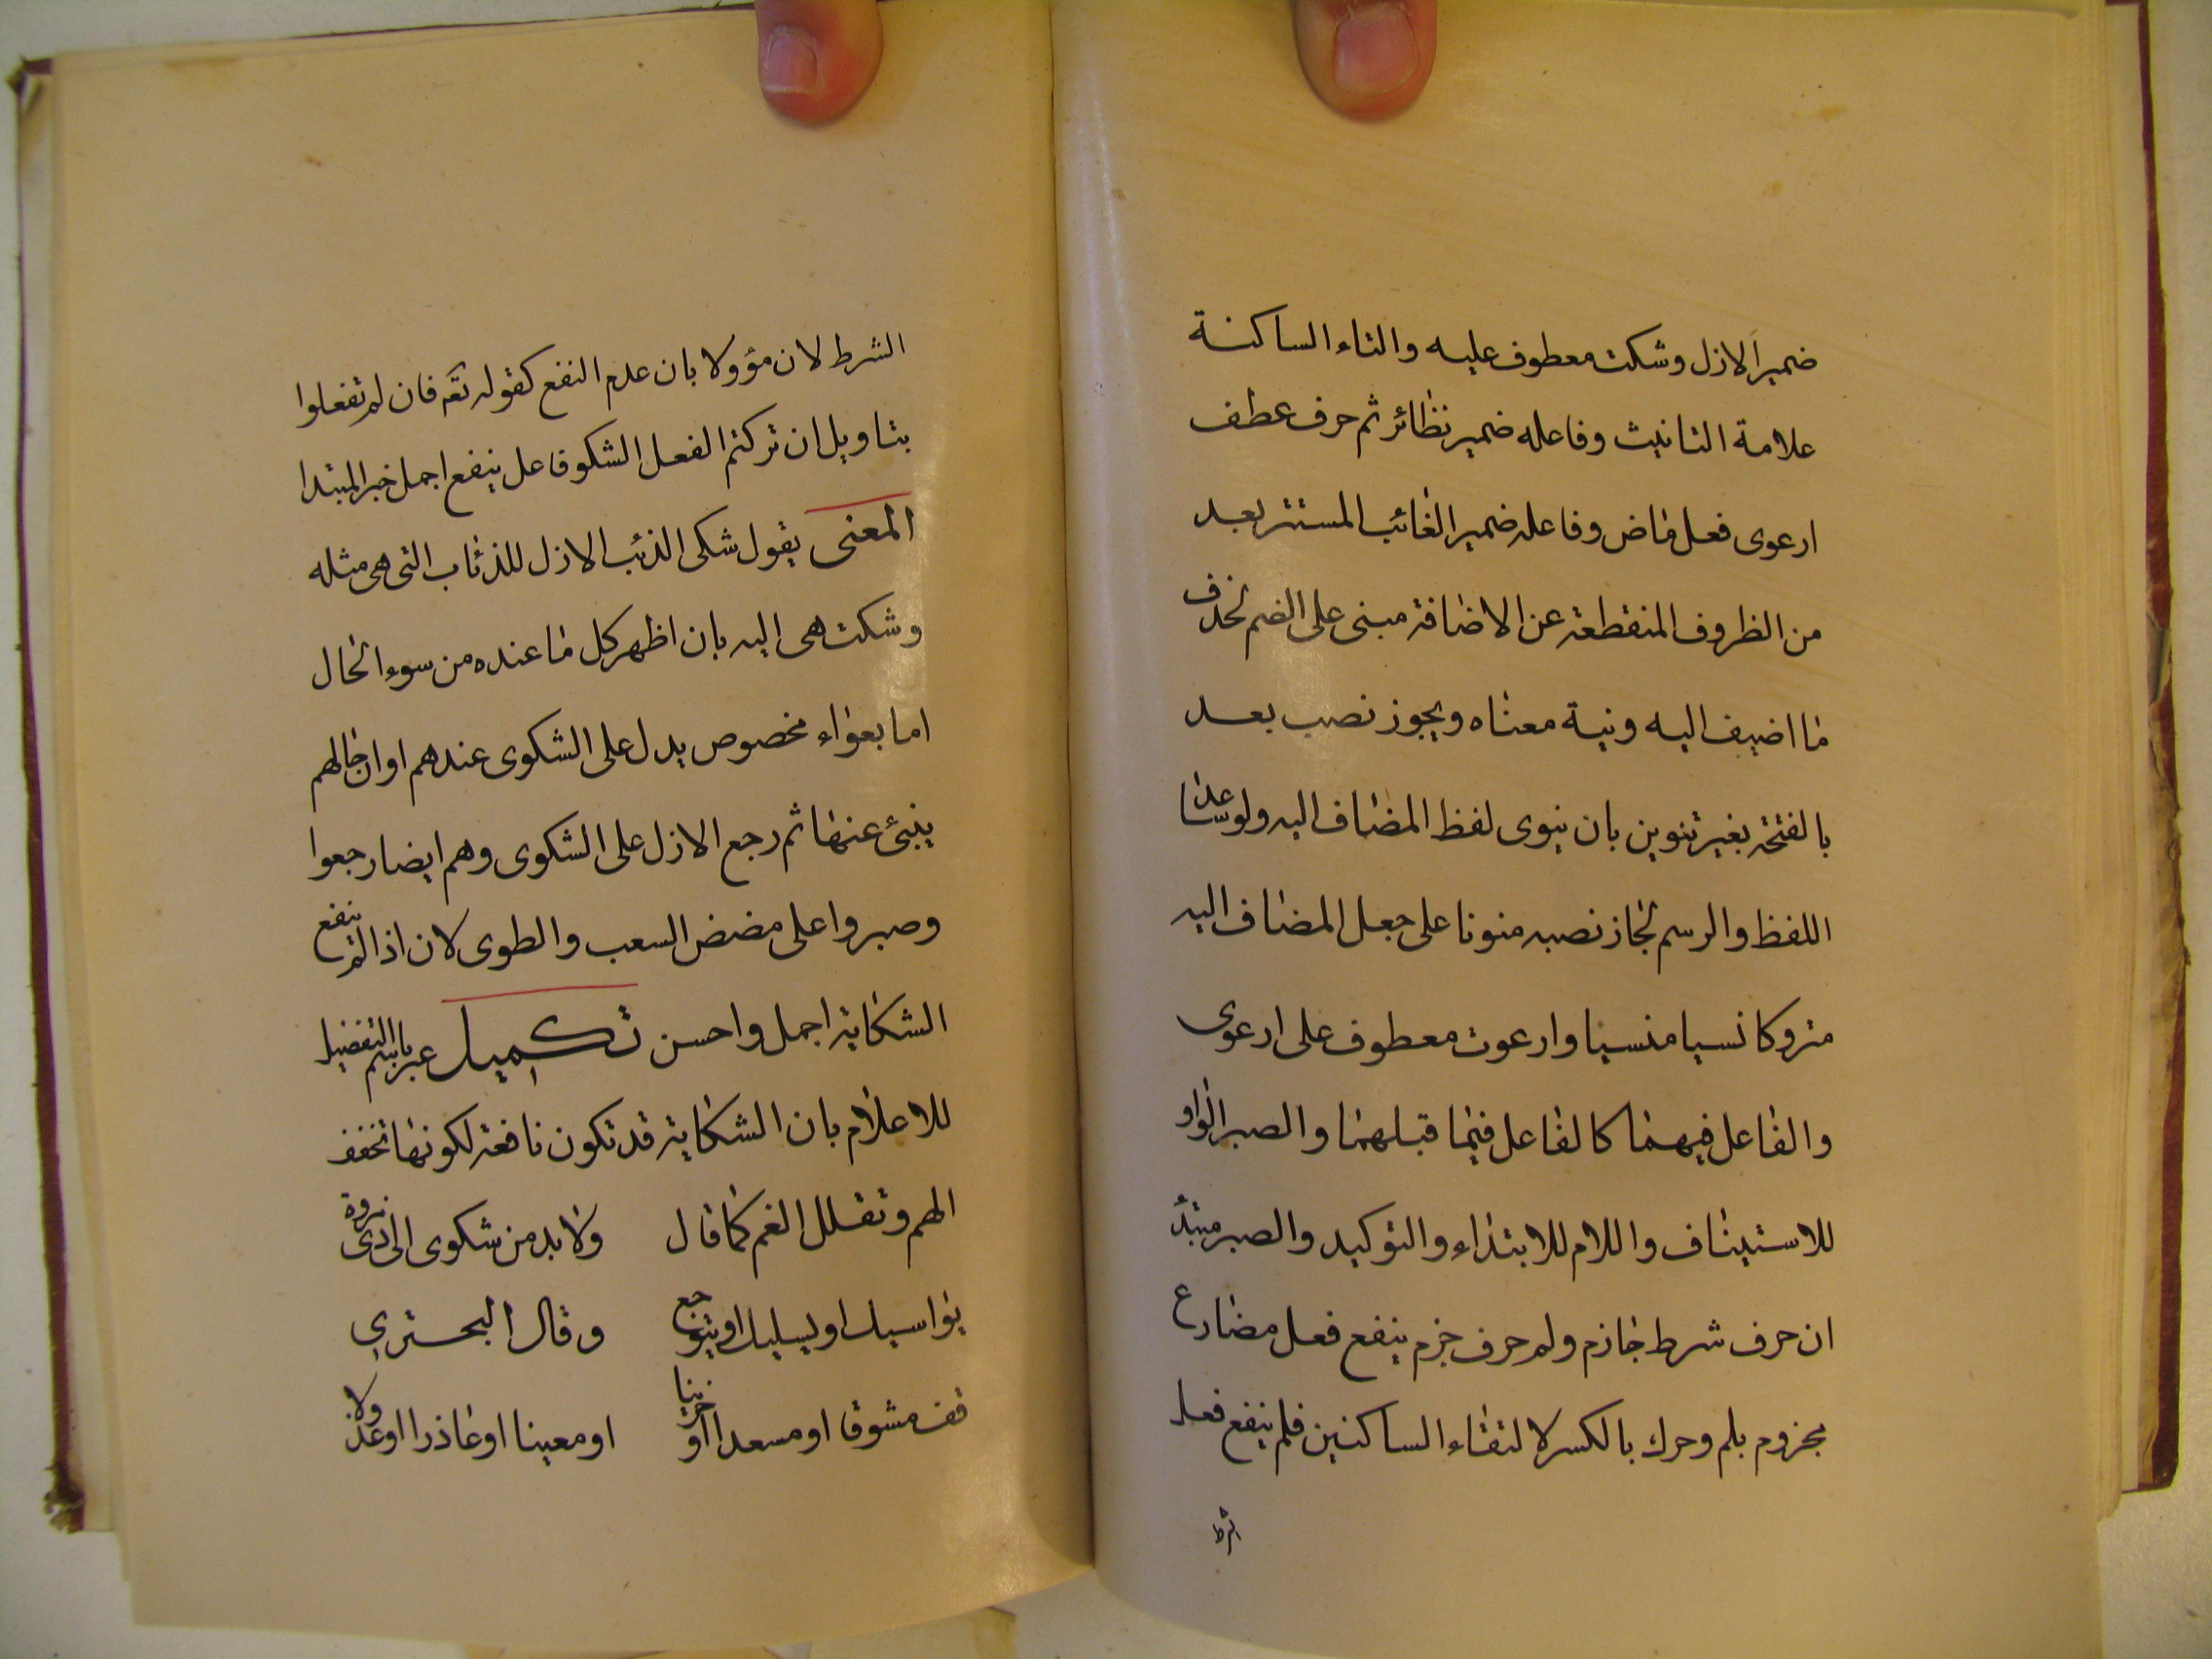 ضمير الازل وشكت معطوف عليه والتاء الساكنة
علامة التانيث وفاعله ضمير نظائر ثم حرف عطف
ارعوى فعل ماض وفاعله ضمير الغائب المستتر بعد
من الظروف المنقطعة عن الاضافة مبنى على الضم لحذف
ما اضيف اليه ونية معناه ويجوز نصب بعد
بالفتحة بغير تنوين بان ينوى لفظ المضاف اليه ولو ساعدنا
اللفظ والرسم لجاز نصبه منونا على جعل المضاف اليه
متروكا نسيا منسيا وارعوت معطوف على ارعوى
والفاعل فيهما كالفاعل فيما قبلهما والصبر الواو
للاستيناف واللام للابتداء والتوكيد والصبر مبتدأ
ان حرف شرط جازم ولم حرف جزم ينفع فعل مضارع
مجزوم بلم وحرك بالكسر لالتقاء الساكنين فلم ينفع فعل
الشرط
الشرط لان مؤولا بان عدم النفع كقوله تعه فان لم تفعلوا
بتاويل ان تركتم الفعل الشكو فاعل ينفع اجمل خبر المبتدا
المعنى يقول شكى الذئب الازل للذئاب التى هى مثله
وشكت هى اليه بان اظهر كل ما عنده من سوء الحال
اما بعواء مخصوص يدل على الشكوى عندهم او ان حالهم
ينبئ عنها ثم رجع الازل على الشكوى وهم ايضا رجعوا
وصبروا على مضض السعب والطوى لان اذا لم ينفع
الشكاية اجمل واحسن تكميل عبر باسم التفضيل
للاعلام بان الشكاية قد تكون نافعة لكونها تخفف
الهم وتقلل الغم كما قال ولا بد من شكوى الى ذى مروة
يواسيك او يسليك او يتوجع وقال البحترى
قف مشوقا او مسعدا او حزينا او معينا او عاذرا او عذولا